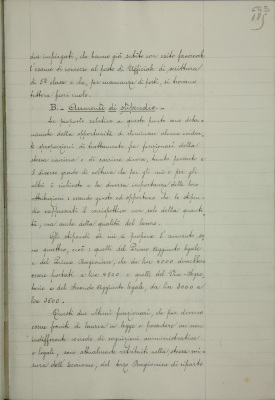 due impiegati, che hanno già subito con esito favorevole
l'esame di concorso al posto di Ufficiale di scrittura
di 5ª classe e che, per mancanza di posti, si trovano
tuttora fuori ruolo.
B. - Aumenti di stipendio. -
Le proposte relative a questo punto sono deter-
minate dalla opportunità di eliminare alcune eviden-
ti sperequazioni di trattamento fra funzionari della
stessa carriera e di carriera diversa, tenuto presente e
il diverso grado di coltura che per gli uni e per gli
altri è richiesto e la diversa importanza delle loro
attribuzioni: essendo giusto ed opportuno che lo stipen-
dio rappresenti il corrispettivo non solo della quanti-
tà, ma anche della qualità del lavoro.
Gli stipendi di cui si propone l'aumento so-
no quattro, cioè: quelli del Primo Aggiunto legale
e del Primo Ragioniere, che da lire 4000 dovrebbero
essere portati a lire 4500 e quelli del Vice-Segre-
tario e del Secondo Aggiunto legale, da lire 3000 a
lire 3500.
Questi due ultimi funzionari, che pur devono
esser forniti di laurea in legge e possedere un non
indifferente corredo di cognizioni amministrative
e legali, sono attualmente retribuiti nella stessa mi-
sura dell'Economo, del terzo Ragioniere di riparto